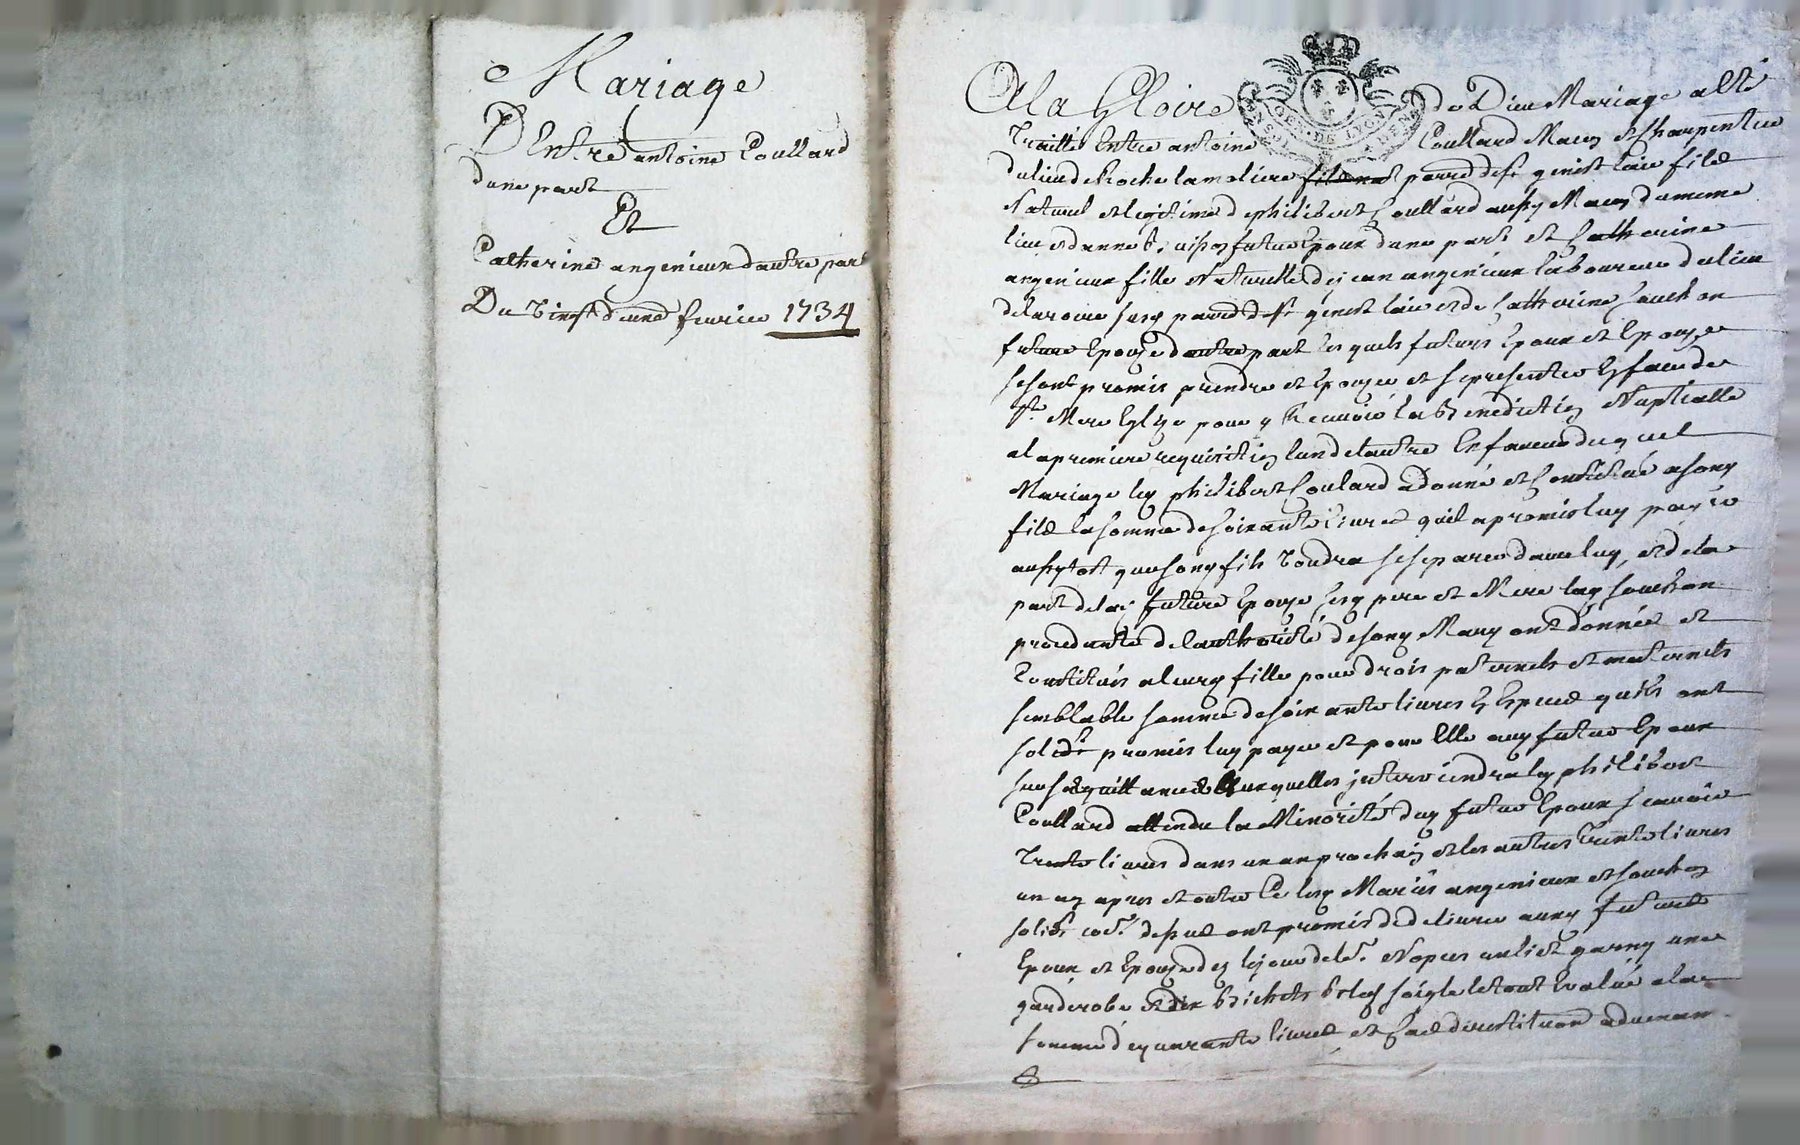 Mariage
D'Entre antoine Coullard
dune part
Et
Catherine angenieux dautre part
Du Vingt deuxe feurier 1734
A la Gloire de Dieu Mariage a Eté
GEN. DE LYON
Traitté Entre antoine Coullard Maçon et Charpentier
du lieu de Roche la moliere parroisse de St genist laire fils
Naturel et legitime de philibert Coullard aussy Maçon du meme
lieu et danne futur Epoux dune part et Catherine
angenieux fille Naturelle de jean angenieux laboureur du lieu
de parroisse de St genist laire et de Catherine Souchon
future Epouse dautre part les quels futurs Epoux et Epouse
se sont promis prendre et Epouser et se presenter En face de
Ste Mere Eglise pour y Receuoir la Benediction Nuptialle
a la premiere requisition lun de lautre En faueur du quel
Mariage led philibert Coulard a donné et Constitué a son
fils la somme de soixante liures quil a promis luy payer
aussytot que son fils Voudra se separer dauec luy, et de la
part de lad future Epouse ses pere et Mere lad souchon
procedante de lauthorité de son Mary ont donné et
Constitués a leur fille pour drois paternels et maternels
semblable somme de soixante liures En Espece quils ont
solidt promis luy payer et pour Elle aud futur Epoux
sur ses quittances Auxquelles interviendra led philibert
Coullard attendu la Minorité dud futur Epoux scauoir
Trente liures dans un an prochain et les autres trente liures
un an apres et outre Ce lesd Mariés angenieux et souchon
solidt dessus ont promis de deliurer auxd futurs
Epoux et Epouse le jour de leurs Nopces un lict garny une
garderobe et dix bichets bled soigle le tout Evalué a la
somme de quarante liures et de restitution aduenant